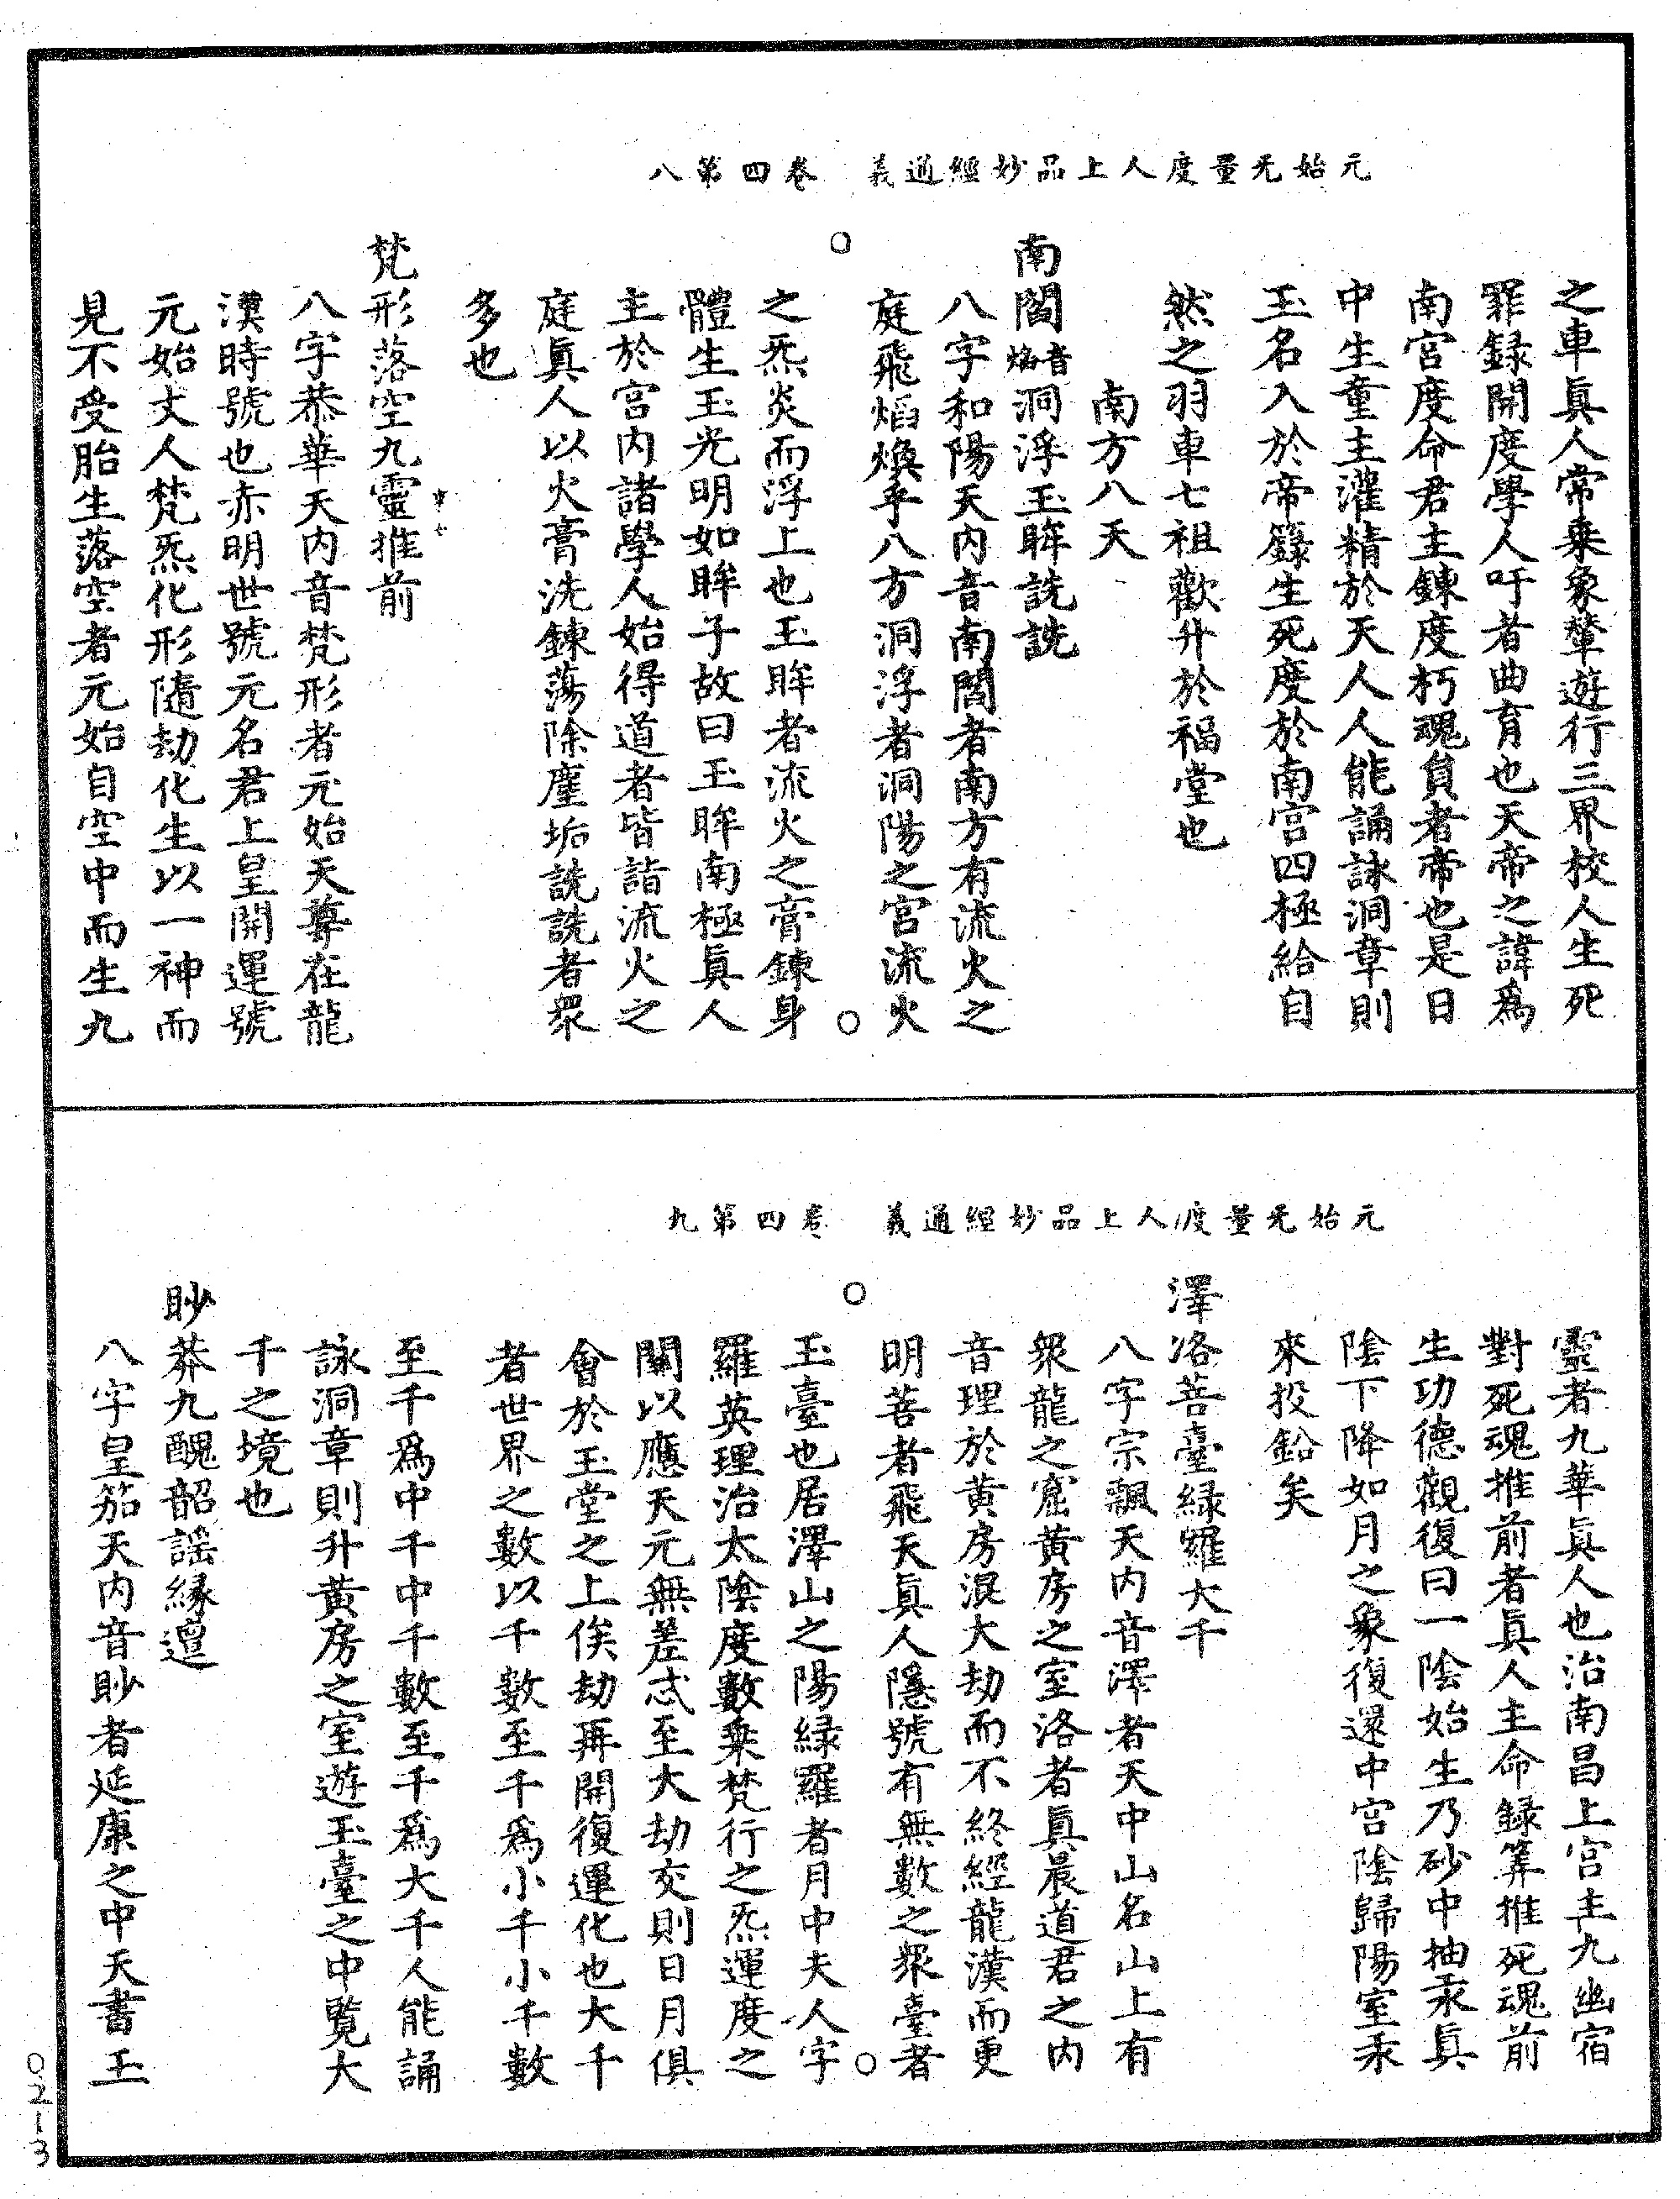 元始无量度人上品妙經通義　卷四第八
之車眞人常乗象輦遊行三界校人生死
罪録開度學人吁者曲育也天帝之諱爲
南宮度命君主鍊度朽魂負者帝也是日
中生童主灌精於天人人能誦詠洞章則
玉名入於帝籙生死度於南宮四極給自
然之羽車七祖歡升於福堂也
南方八天
南閻音焔洞浮玉眸詵詵
八字和陽天内音南閻者南方有流火之
庭飛焰煥乎八方洞浮者洞陽之宮流火
之炁炎而浮上也玉眸者流火之膏鍊身
體生玉光明如眸子故曰玉眸南極眞人
主於宮内諸學人始得道者皆詣流火之
庭眞人以火膏洗鍊蕩除塵垢詵詵者衆
多也
梵形落空九靈推前
八字恭華天内音梵形者元始天尊在龍
漢時號也赤明世號元名君上皇開運號
元始丈人梵炁化形隨劫化生以一神而
見不受胎生落空者元始自空中而生九
元始无量度人上品妙經通義　卷四第九
靈者九華眞人也治南昌上宮主九幽宿
對死魂推前者眞人主命録筭推死魂前
生功德觀復曰一陰始生乃砂中抽汞眞
陰下降如月之象復還中宮陰歸陽室汞
來投鉛矣
澤洛菩臺緑羅大千
八字宗飄天内音澤者天中山名山上有
衆龍之窟黄房之室洛者眞晨道君之内
音理於黄房混大劫而不終經龍漢而更
明菩者飛天眞人隱號有無數之衆臺者
玉臺也居澤山之陽緑羅者月中夫人字
羅英理治太陰度數乗梵行之炁運度之
關以應天元無差忒至大劫交則日月俱
會於玉堂之上俟劫再開復運化也大千
者世界之數以千數至千爲小千小千數
至千爲中千中千數至千爲大千人能誦
詠洞章則升黄房之室遊玉臺之中覽大
千之境也
眇莽九醜韶謡緣邅
八字皇笳天内音眇者延康之中天書玉
02-13